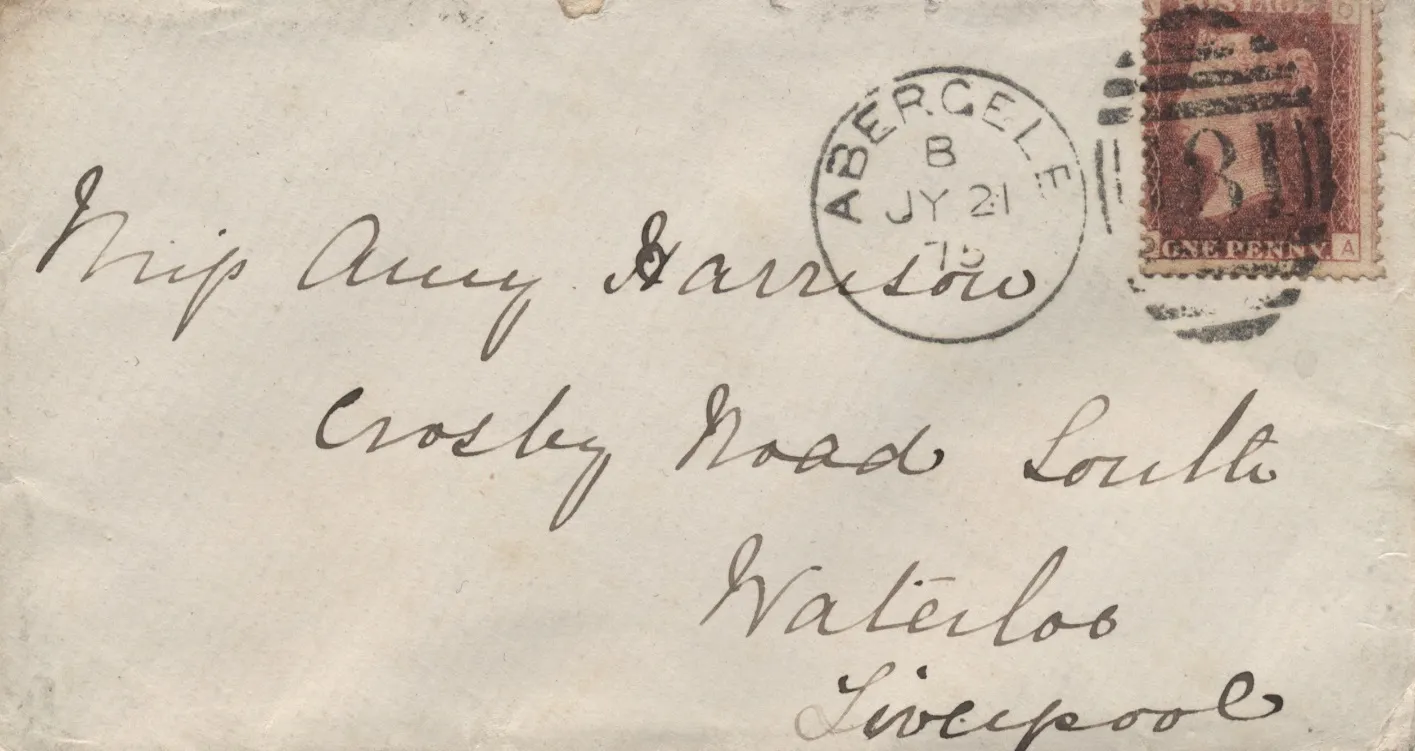 POSTAGE
ABERGELE
B
JY 21
75
31
ONE PENNY
A
Miss Amy Harrison
Crosby Road South
Waterloo
Liverpool